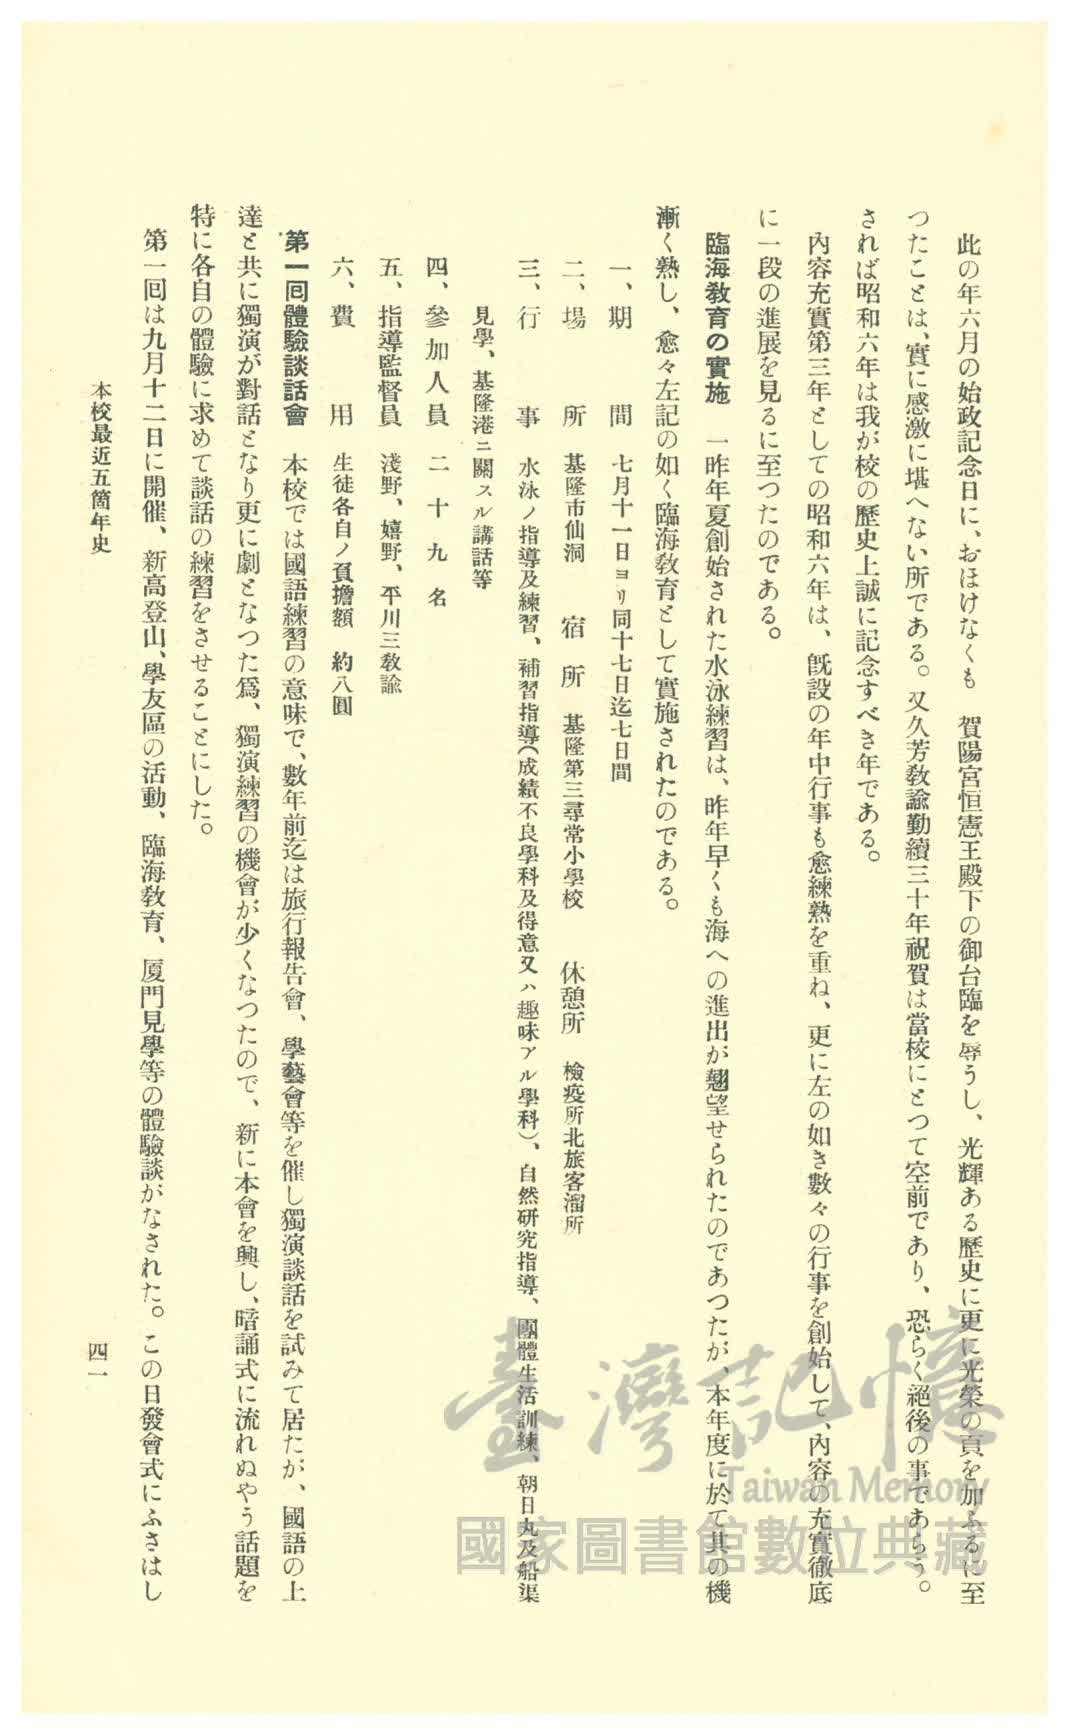 此の年六月の始政記念日に、おほけなくも　賀陽宮恒憲王殿下の御台臨を辱うし、光輝ある歷史に更に光榮の頁を加ふるに至
つたことは、實に感激に堪へない所である。又久芳敎諭勤續三十年祝賀は當校にとつて空前であり、恐らく絕後の事であらう。
されば昭和六年は我が校の歷史上誠に記念すべき年である。
內容充實第三年としての昭和六年は、旣設の年中行事も愈練熟を重ね、更に左の如き數々の行事を創始して、內容の充實徹底
に一段の進展を見るに至つたのである。
臨海敎育の實施　一昨年夏創始された水泳練習は、昨年早くも海への進出が翹望せられたのであつたが、本年度に於て其の機
漸く熟し、愈々左記の如く臨海敎育として實施されたのである。
一、期間　七月十一日ヨリ同十七日迄七日間
二、場所　基隆市仙洞　宿所　基隆第三尋常小學校　休憩所　檢疫所北旅客溜所
三、行事　水泳ノ指導及練習、補習指導(成績不良學科及得意又ハ趣味アル學科)、自然硏究指導、團體生活訓練、朝日丸及船渠
見學、基隆港ニ關スル講話等
四、參加人員　二十九名
五、指導監督員　淺野、嬉野、平川三敎諭
六、費用　生徒各自ノ負擔額　約八圓
第一回體驗談話會　本校では國語練習の意味で、數年前迄は旅行報告會、學藝會等を催し獨演談話を試みて居たが、國語の上
達と共に獨演が對話となり更に劇となつた爲、獨演練習の機會が少くなつたので、新に本會を興し、暗誦式に流れぬやう話題を
特に各自の體驗に求めて談話の練習をさせることにした。
第一回は九月十二日に開催、新高登山、學友區の活動、臨海敎育、厦門見學等の體驗談がなされた。この日發會式にふさはし
本校最近五箇年史
四一
臺灣記憶
Taiwan Memory
國家圖書館數位典藏